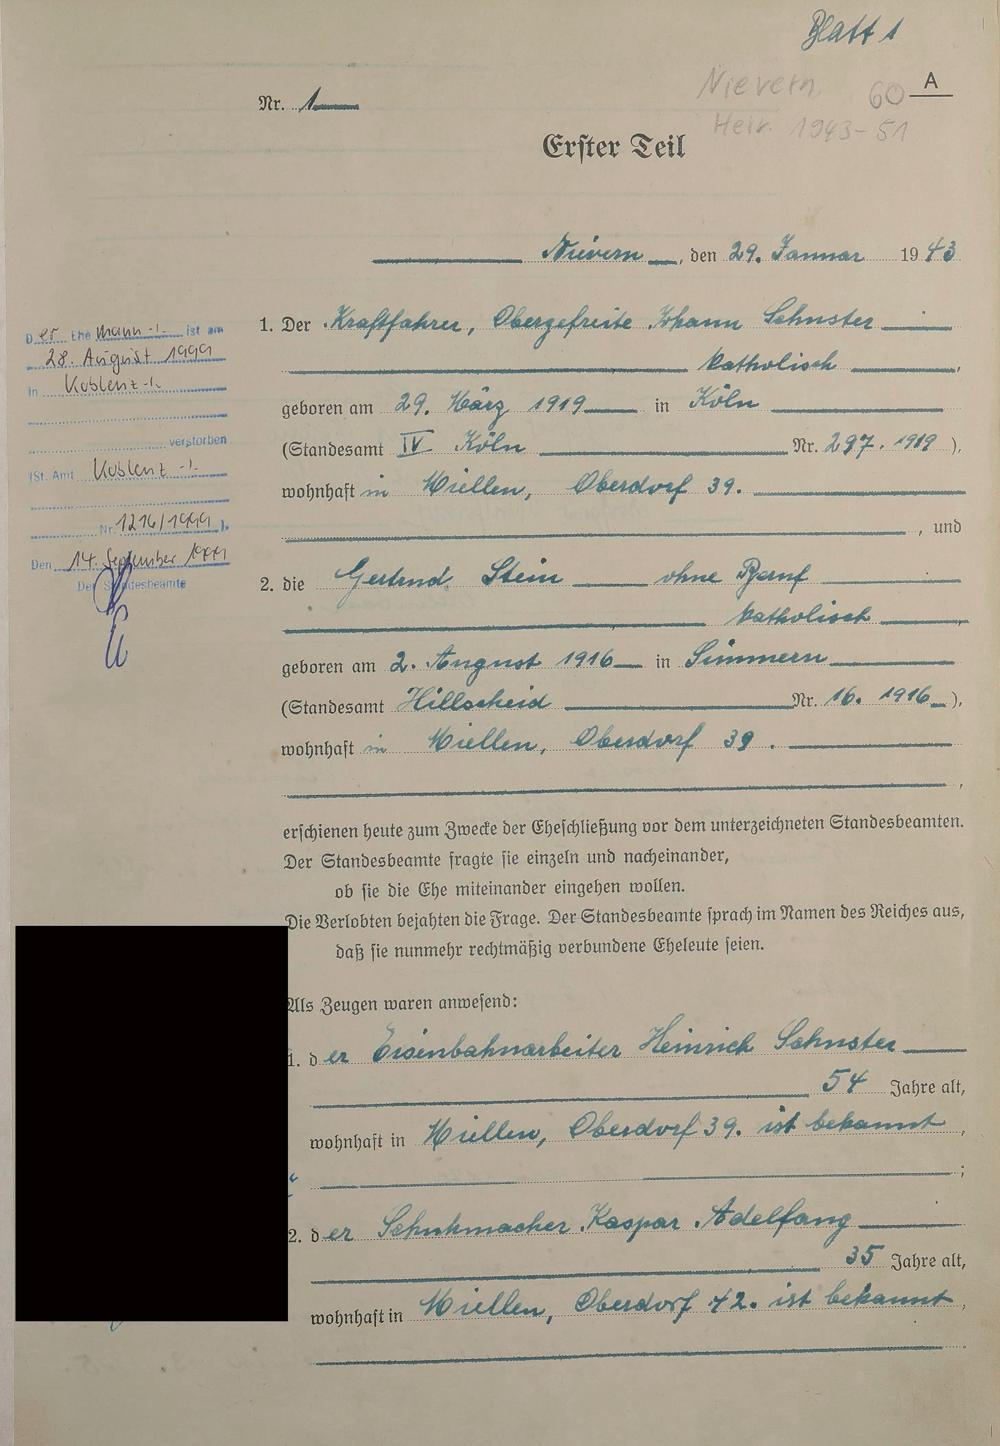 Blatt 1
Nievern, 60 A
Heir. 1943-51
Nr. 1
Erster Teil
Nievern, den 29. Januar 1943
1. Der Kraftfahrer, Obergefreite Johann Schuster
katholisch,
geboren am 29. März 1919 in Köln
(Standesamt IV Köln Nr. 297. 1919),
wohnhaft in Miellen, Oberdorf 39.
, und
2. die Gertrud Stein ohne Beruf
katholisch,
geboren am 2. August 1916 in Simmern
(Standesamt Hillscheid Nr. 16. 1916),
wohnhaft in Miellen, Oberdorf 39.
,
erschienen heute zum Zwecke der Eheschließung vor dem unterzeichneten Standesbeamten.
Der Standesbeamte fragte sie einzeln und nacheinander,
ob sie die Ehe miteinander eingehen wollen.
Die Verlobten bejahten die Frage. Der Standesbeamte sprach im Namen des Reiches aus,
daß sie nunmehr rechtmäßig verbundene Eheleute seien.
Als Zeugen waren anwesend:
1. der Eisenbahnarbeiter Heinrich Schuster
54 Jahre alt,
wohnhaft in Miellen, Oberdorf 39. ist bekannt,
;
2. der Schuhmacher Kaspar Adelfang
35 Jahre alt,
wohnhaft in Miellen, Oberdorf 42. ist bekannt,
.
Der Ehemann -/- ist am
28. August 1999
in Koblenz -/-
verstorben
(St. Amt Koblenz -/-
Nr. 1216/1999).
Den 14. September 1999
Der Standesbeamte